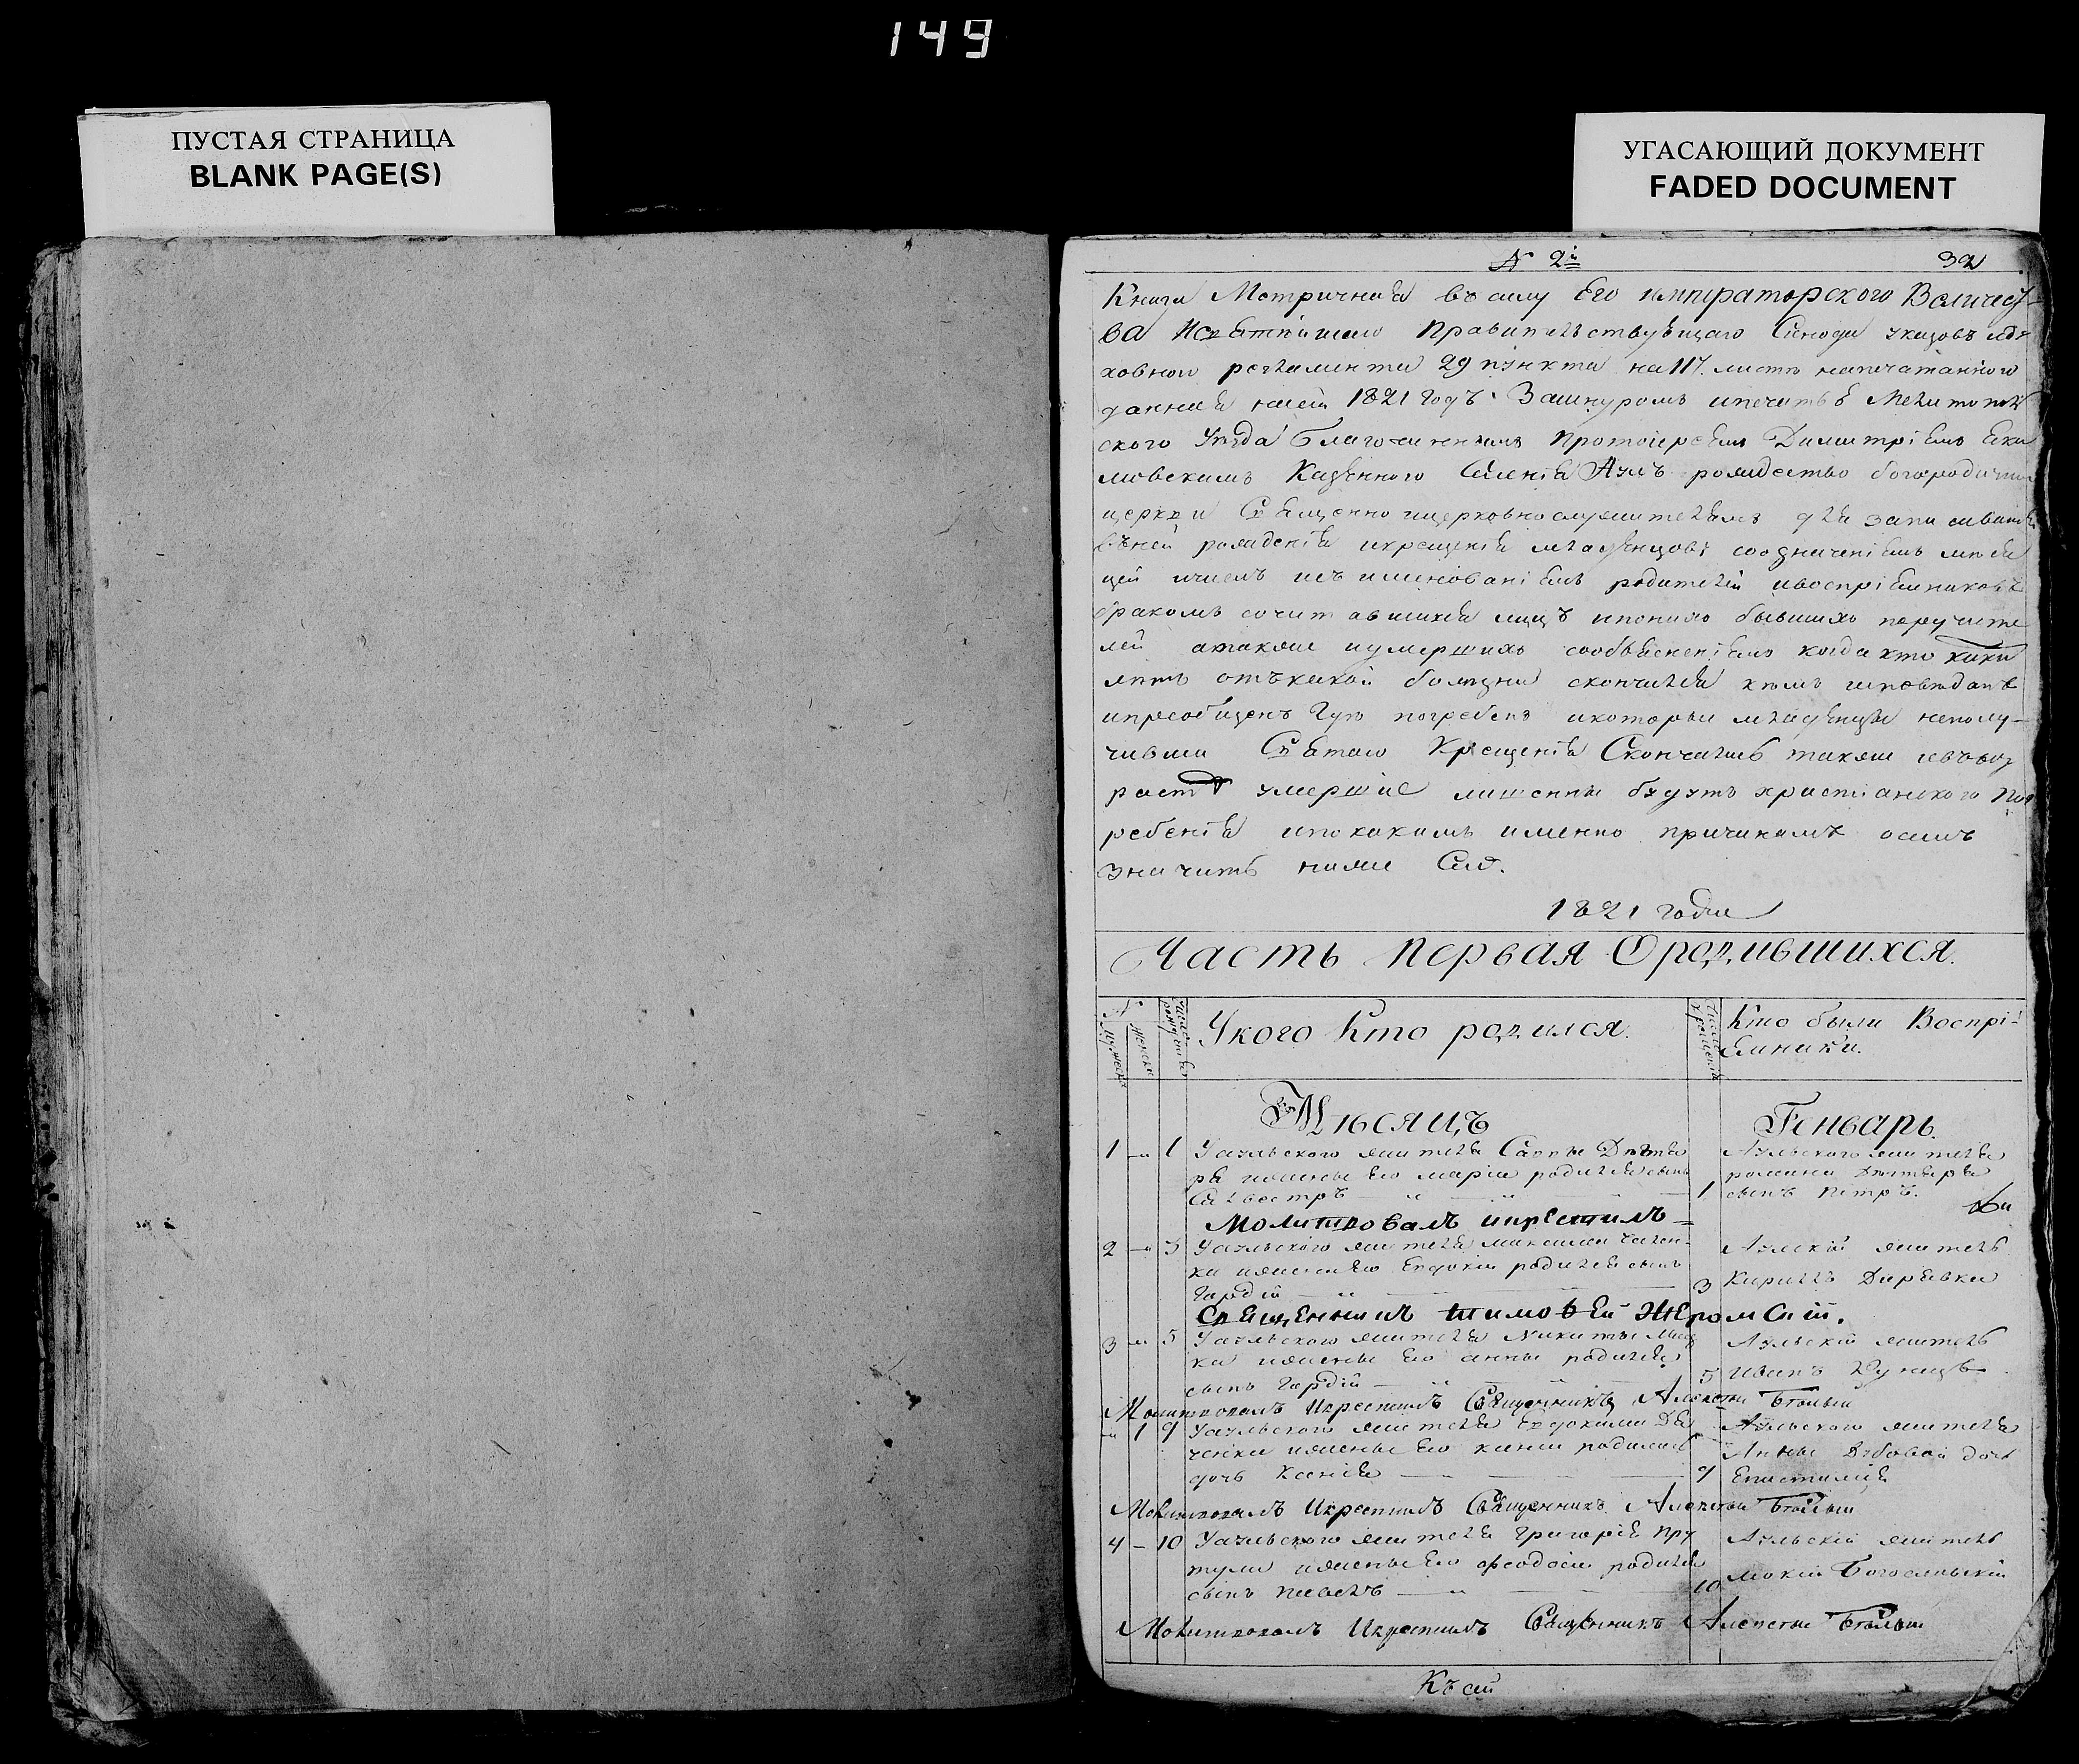 149
ПУСТАЯ СТРАНИЦА
BLANK PAGE(S)
УГАСАЮЩИЙ ДОКУМЕНТ
FADED DOCUMENT
N 2й
32
Книга Метричная въ силу Его императорского Величест-
ва Правительствующаго Синода указовъ
ховного регламента 29 пункта на 117. листѣ напечатанного
данная на сей 1821 годъ. За шнуромъ и печатью Мелитополь
ского Уѣзда Благочиннымъ Протоіереемъ Димитріемъ
Казенного Селенія Аулъ рождество богородичной
церкви Священно и церковнослужителямъ для записыванія
въ ней рожденія и крещенія младенцовъ со означеніемъ мѣся
цей и чиселъ и съ именованіемъ родителей и воспріемниковъ
бракомъ сочитавшихся лицъ и по нихъ бывшихъ поручите
лей а также и умершихъ со объясненіемъ когда кто каки
лѣтъ отъ какой болѣзни скончался кѣмъ исповѣданъ
и пресобщенъ Гдѣ погребенъ и которыи младенцы неполу-
чивши Святаго Крещенія Скончались также и въ воз
растѣ умершіе лишенны будутъ христіанского Пог
ребенія и по какимъ именно причинамъ о семъ
значитъ ниже Сего.
1821 года
Часть Первая О родившихся.
N
Мужеск
Женск
Число рожденія
У кого Кто родился.
Число крещенія
Кто были Воспрі-
емники.
Мѣсяцъ
Генварь.
1 — 1 Уаульского жителя Саввы
ря и жены его маріи родился сынъ
Селвестръ
Аульского жителя
романа
1 сынъ Петръ.
Молитвовалъ и крестилъ
2 — 3 Уаульского жителя максима
ка и жены его Евдокіи родился сынъ
Гордій
Аулскій житель
3 Кирилъ
Священникъ тимофей Жеромскій.
3 — 5 Уаульского жителя Никиты
ка и жены его анны родился
сынъ Гордій
Аульскій житель
5 Иванъ
Молитвовалъ Икрестилъ Священникъ Алексей Бѣлый
— 1 9 Уаульского жителя Евдокима
ченка и жены его родилась
дочь Ксенія
Аульского жителя
дочь
9 Епистимія
Молитвовалъ Икрестилъ Священникъ Алексей Бѣлый
4 — 10 Уаульского жителя Григорія При
тулы и жены его феодосіи родился
сынъ Павелъ
Аульскій житель
10 мокій Богославскій
Молитвовалъ Икрестилъ Священникъ Алексей Бѣлый
Къ сей